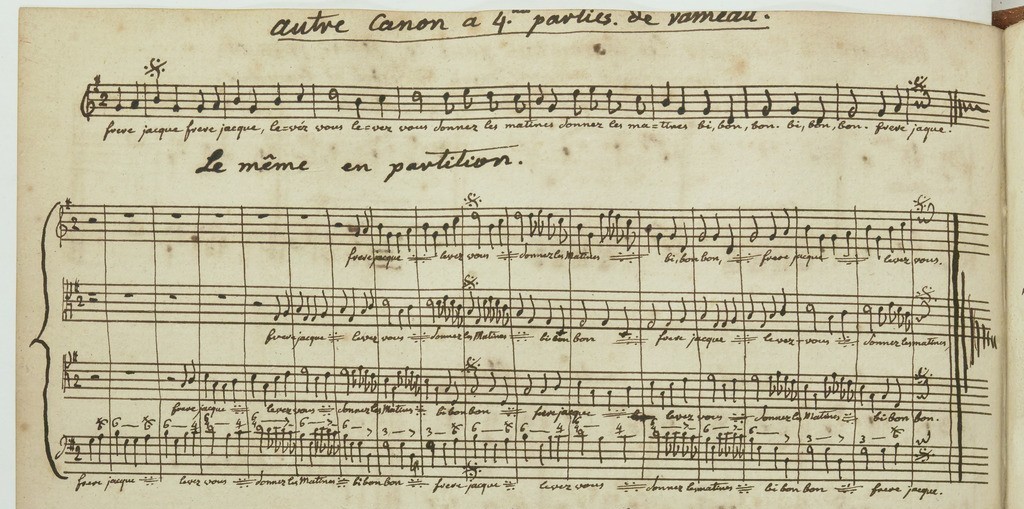 autre Canon a 4.me parties. de rameau.
frere jacque frere jacque, le=véz vous le=vez vous donnez les matines donnez les ma=tines bi, bon, bon. bi, bon, bon. frere jacque.
Le même en partition.
frere jacque levez vous donnez les Matines bi, bon bon, frere jacque levez vous.
frere jacque levez vous donnez les Matines bi bon bon frere jacque levez vous donnez les matines,
frere jacque levez vous donnez les Matines bi bon bon frere jacque levez vous donnez les Matines bi bon bon.
frere jacque levez vous donnez les Matines bi bon bon frere jacque levez vous donnez les matines bi bon bon frere jacque.